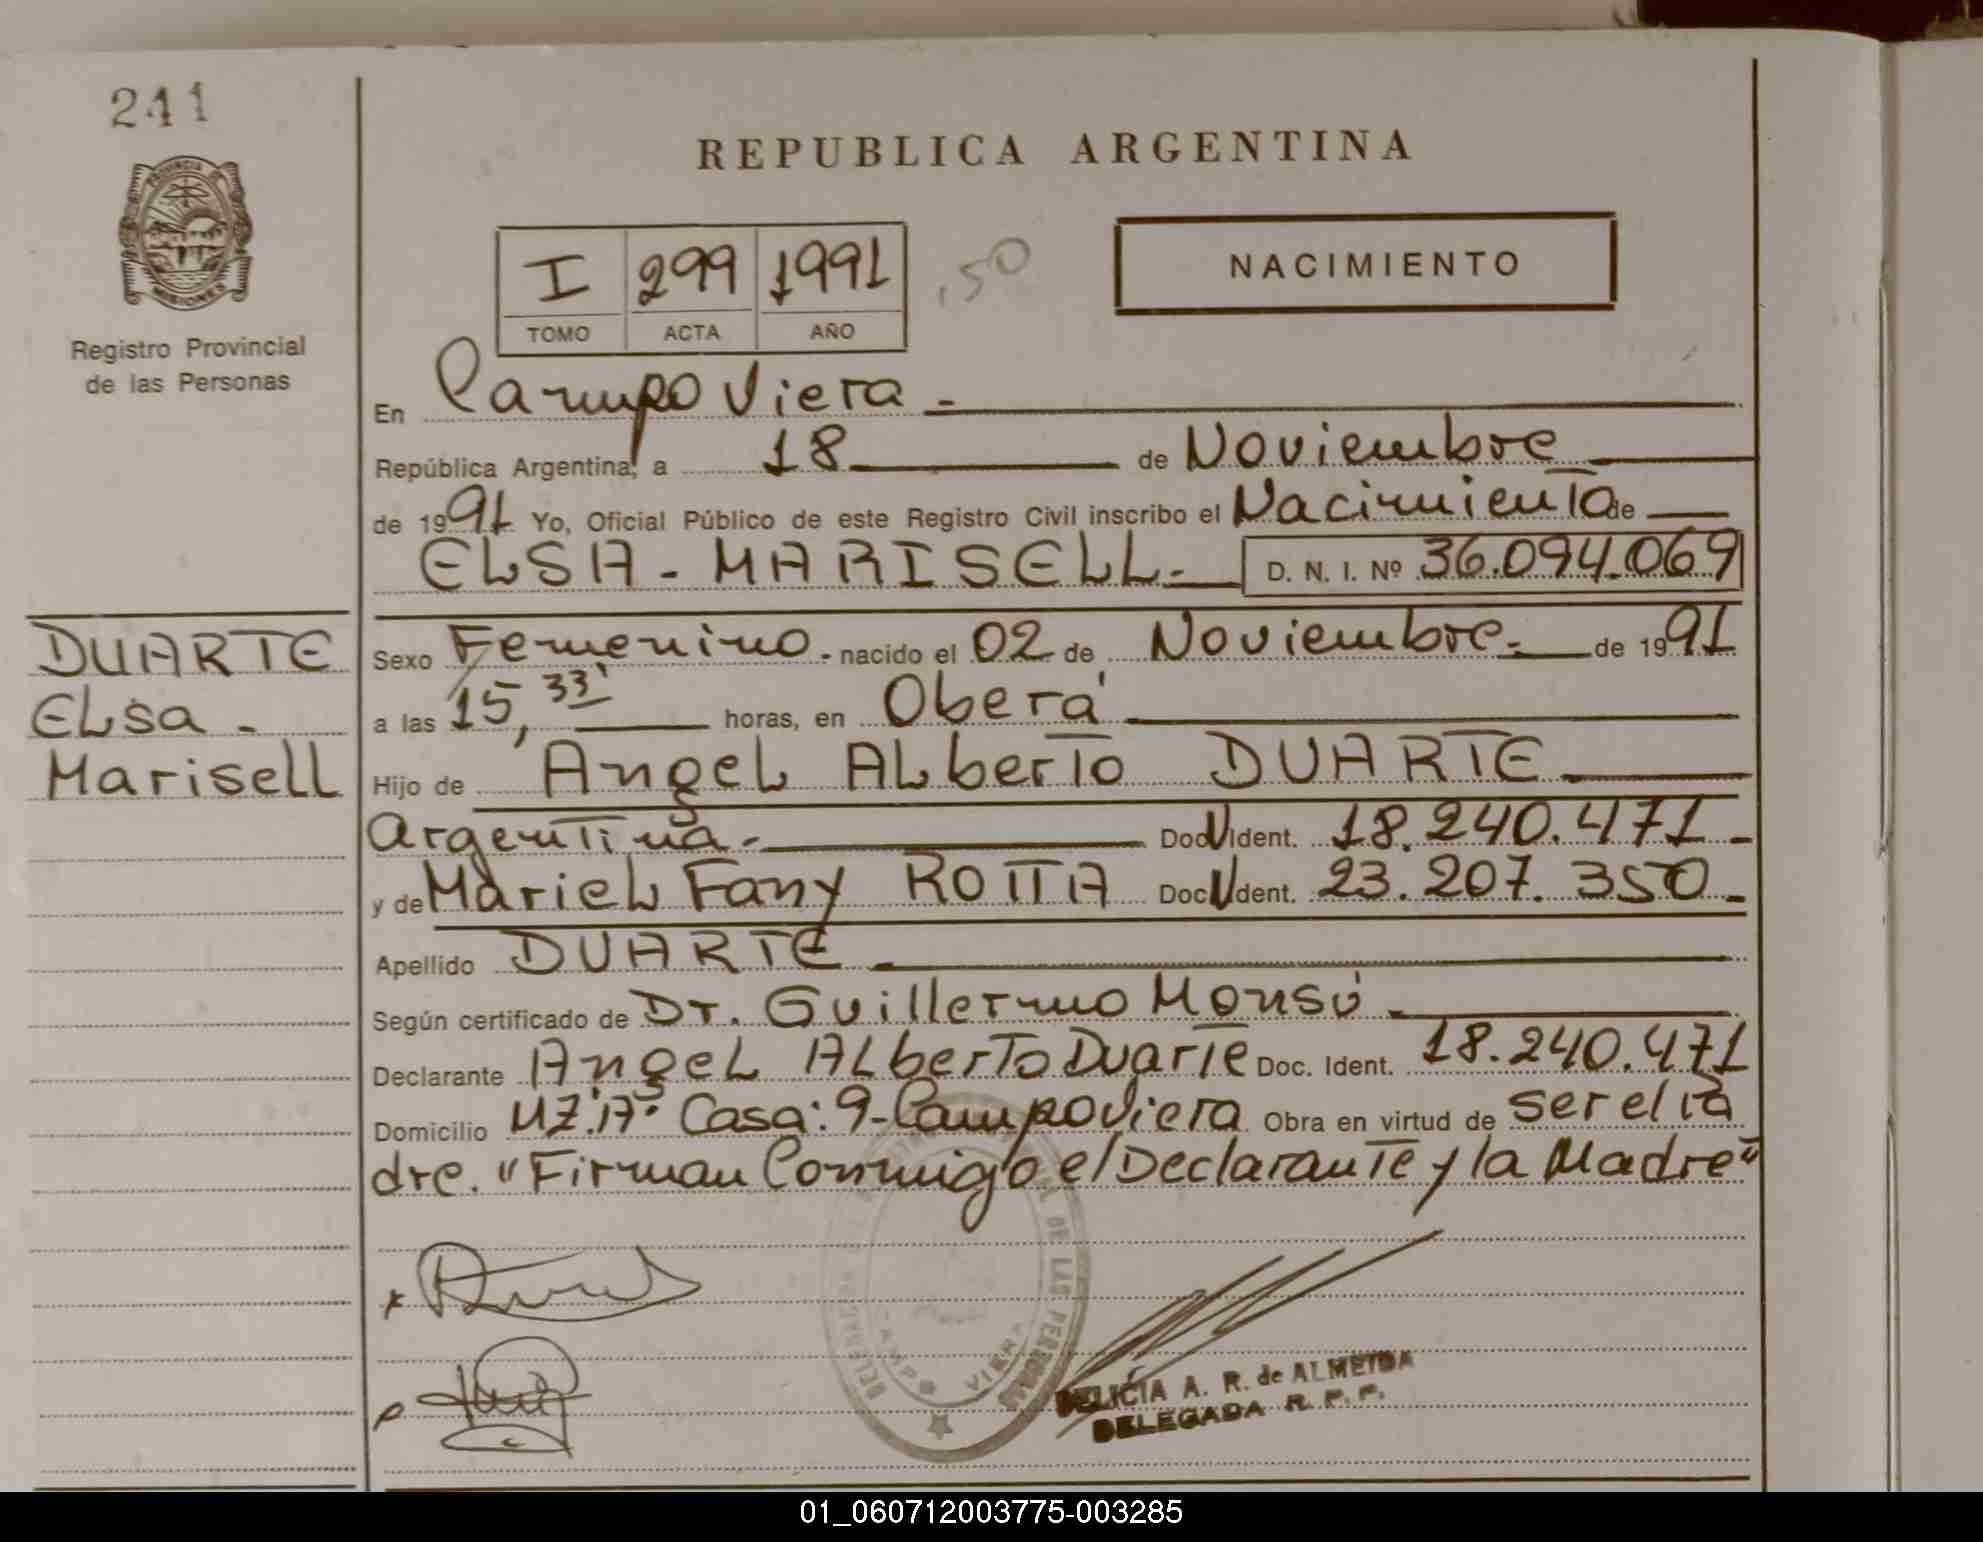 241
PROVINCIA
MISIONES
Registro Provincial
de las Personas
REPUBLICA ARGENTINA
I 299 1991
TOMO ACTA AÑO
,50
NACIMIENTO
En Campo Viera -
República Argentina, a 18 de Noviembre
de 1991 Yo, Oficial Público de este Registro Civil inscribo el Nacimiento de
ELSA - MARISELL.- D. N. I. Nº 36.094.069
DUARTE
Elsa -
Marisell
Sexo Femenino.- nacido el 02 de Noviembre.- de 1991
a las 15,33' horas, en Oberá
Hijo de Angel Alberto DUARTE
Argentina.- Doc Ident. 18.240.471-
y de Mariel Fany ROTTA Doc Ident. 23.207.350-
Apellido DUARTE
Según certificado de Dr. Guillermo Monsú
Declarante Angel Alberto Duarte Doc. Ident. 18.240.471
Domicilio MZ.A. Casa: 9-Campo Viera Obra en virtud de ser el Pa
dre. "Firman Conmigo el Declarante y la Madre"
DE LAS PERSONAS
CAMPO VIERA
DELICIA A. R. de ALMEIDA
DELEGADA R. P. P.
01_060712003775-003285